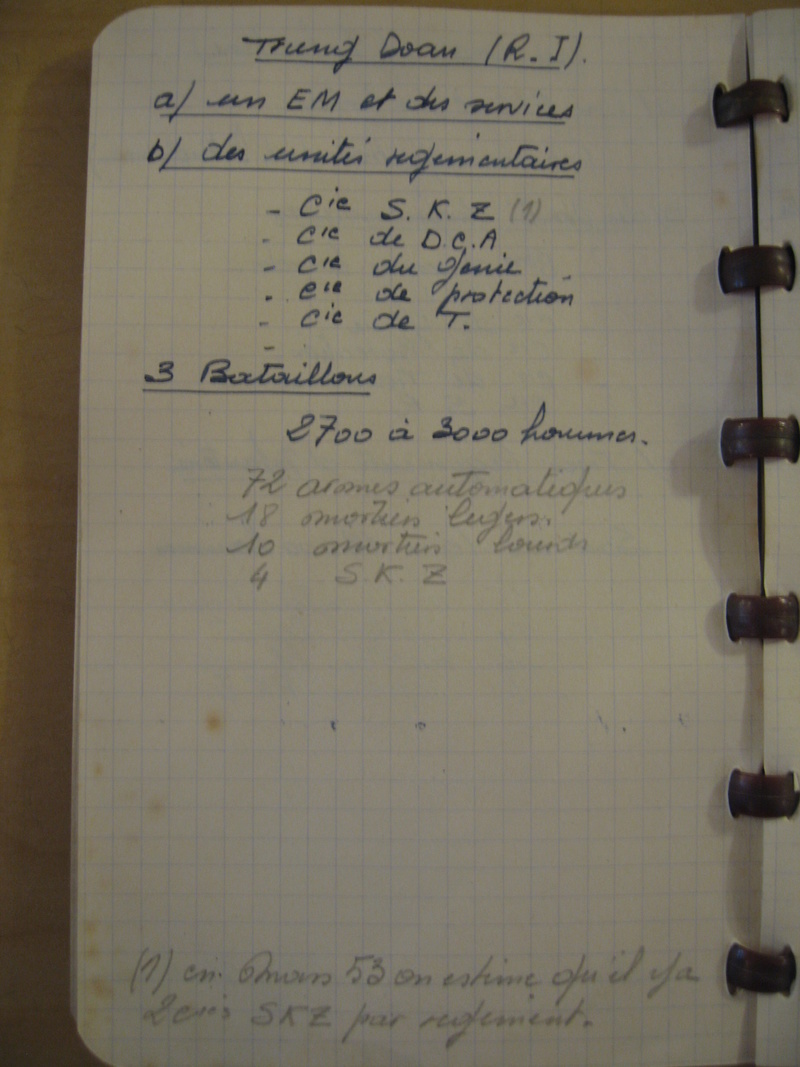 Trung Doan (R.I).
a) un EM et des services
b) des unités regimentaires
- Cie S.K.Z (1)
- Cie de D.C.A
- Cie du génie
- Cie de protection
- Cie de T.
-
3 Bataillons
2700 à 3000 hommes.
72 armes automatiques
18 mortiers legers.
10 mortiers lourds
4 S.K.Z
(1) en Mars 53 on estime qu'il y a
2 cies SKZ par regiment.